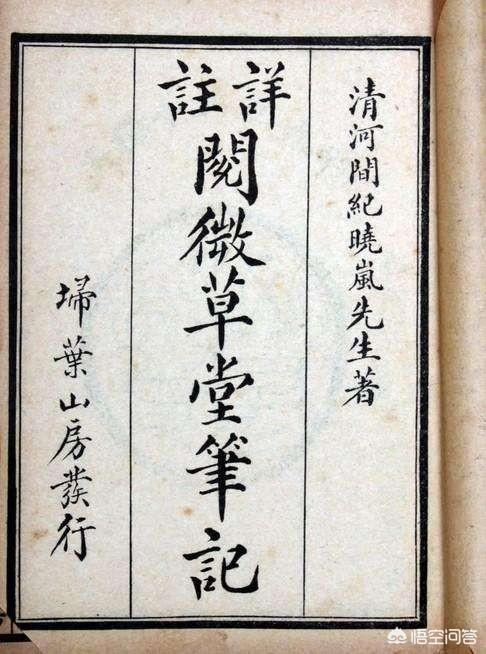 清河間紀曉嵐先生著
詳註
閱微草堂筆記
埽葉山房發行
悟空问答